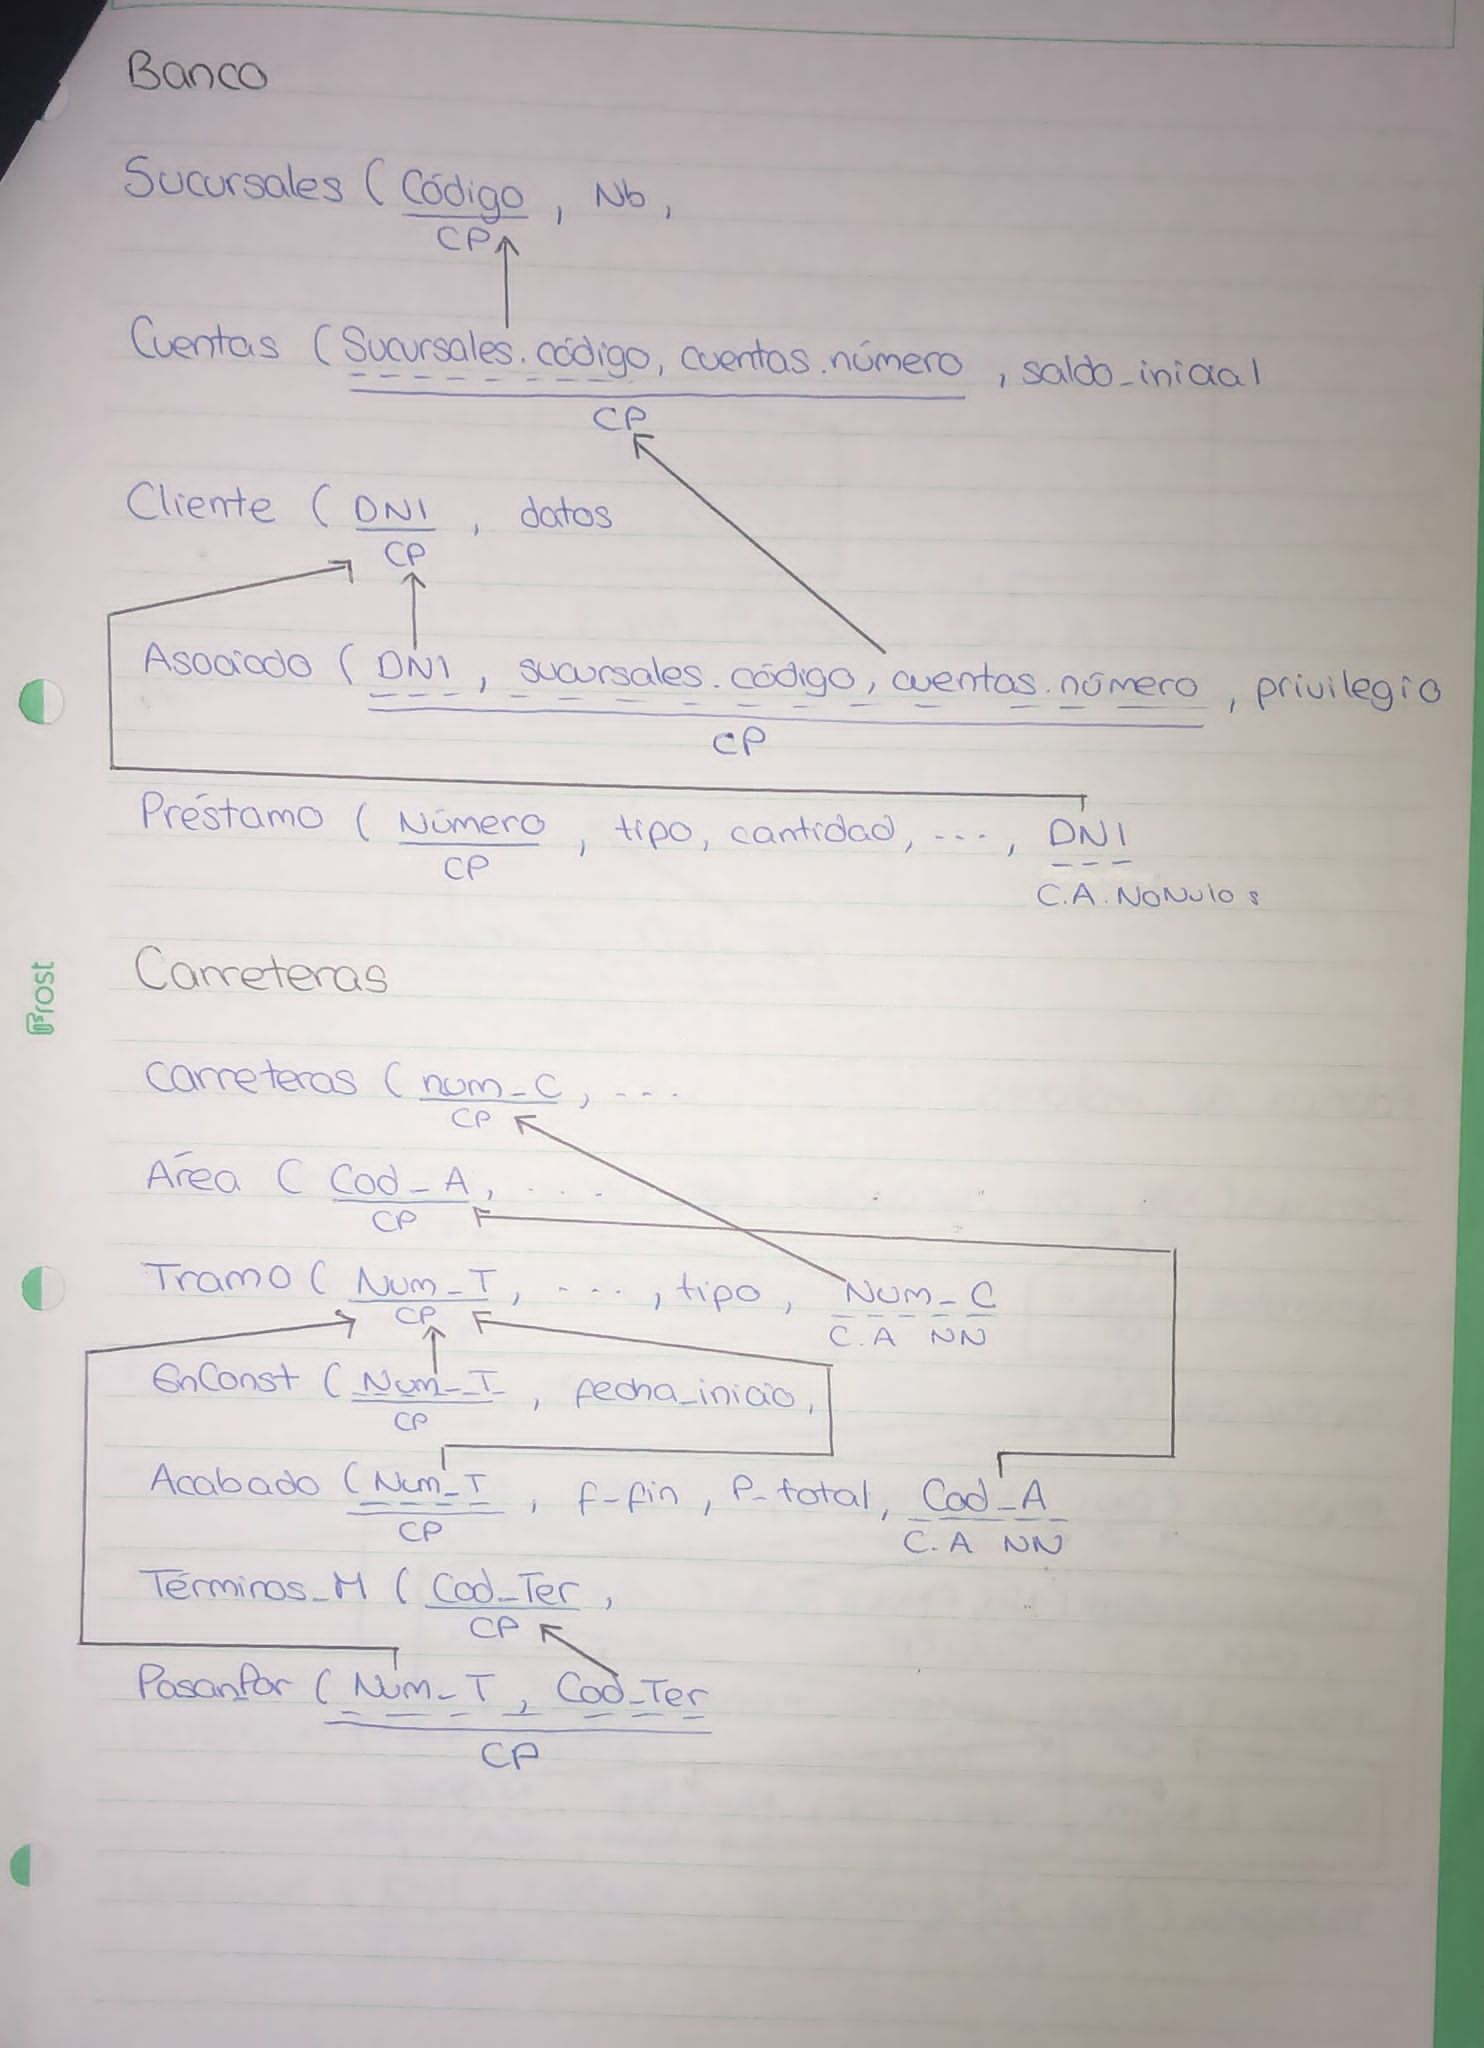 Banco
Sucursales ( Código , Nb ,
CP
Cuentas ( Sucursales.código, cuentas.número , saldo_inicial
CP
Cliente ( DNI , datos
CP
Asociado ( DNI , sucursales.código, cuentas.número , privilegio
CP
Préstamo ( Número , tipo, cantidad, ..., DNI
CP
C.A. NoNulos
Carreteras
Carreteras ( num_C, ...
CP
Área ( Cod_A, ...
CP
Tramo ( Num_T, ..., tipo, Num_C
CP
C.A NN
EnConst ( Num_T , fecha_inicio,
CP
Acabado ( Num_T , f_fin , P_total, Cod_A
CP
C.A NN
Términos_M ( Cod_Ter,
CP
PasanPor ( Num_T, Cod_Ter
CP
Frost